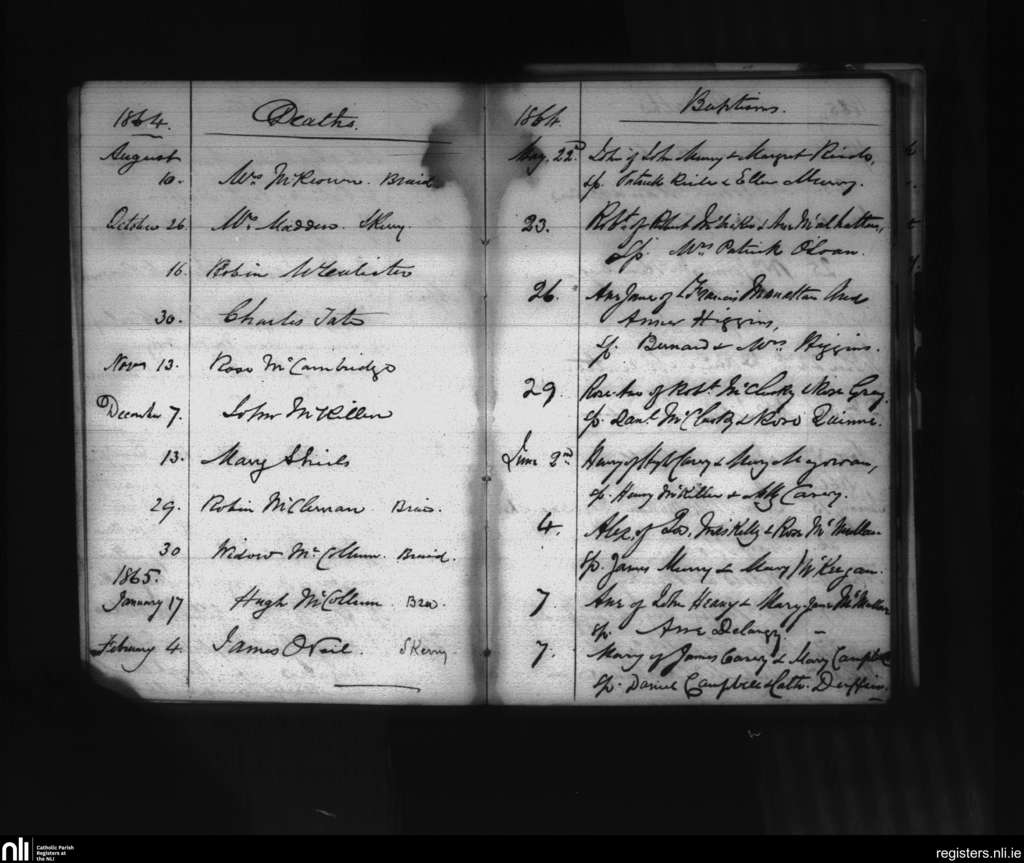 1864.
Deaths.
August
10. Mrs McKeown. Braid
October 26. Mrs Madden. Skerry
16. Robin McCalister
30. Charles Tate
Novr 13. Rose McCambridge
December 7. John McKillen
13. Mary Shiels
29. Robin McClernan Braid.
30 Widow McCollum. Braid.
1865.
January 17 Hugh McCollum. Braid.
February 4. James ONeil. Skerry
1864
Baptisms.
May, 22nd John of John Murry & Margret
sp. Patrick & Ellen Murry.
23. Robt. of Robert & Ann
sp. Mrs Patrick OLoan.
26. Ann Jane of Francis and
Higgins,
sp. Bernard & Mrs Higgins.
29. Rose Ann of Robt. McClusky & Rose Gray,
sp. Danl. McClusky & Rose Quinne.
June 2nd Henry of Hugh Carey & Mary
sp. Henry McKillen & Carey.
4. Alex. of & Rose McMullan
sp. James Murry & Mary McKeegan.
7. Ann of John Heany & Mary Jane McMullan
sp. Ann Delargy. –
7. Mary of James Carey & Mary Campbell
sp. Daniel Campbell & Cath. Duffin.
nli
Catholic Parish
Registers at
the NLI
registers.nli.ie